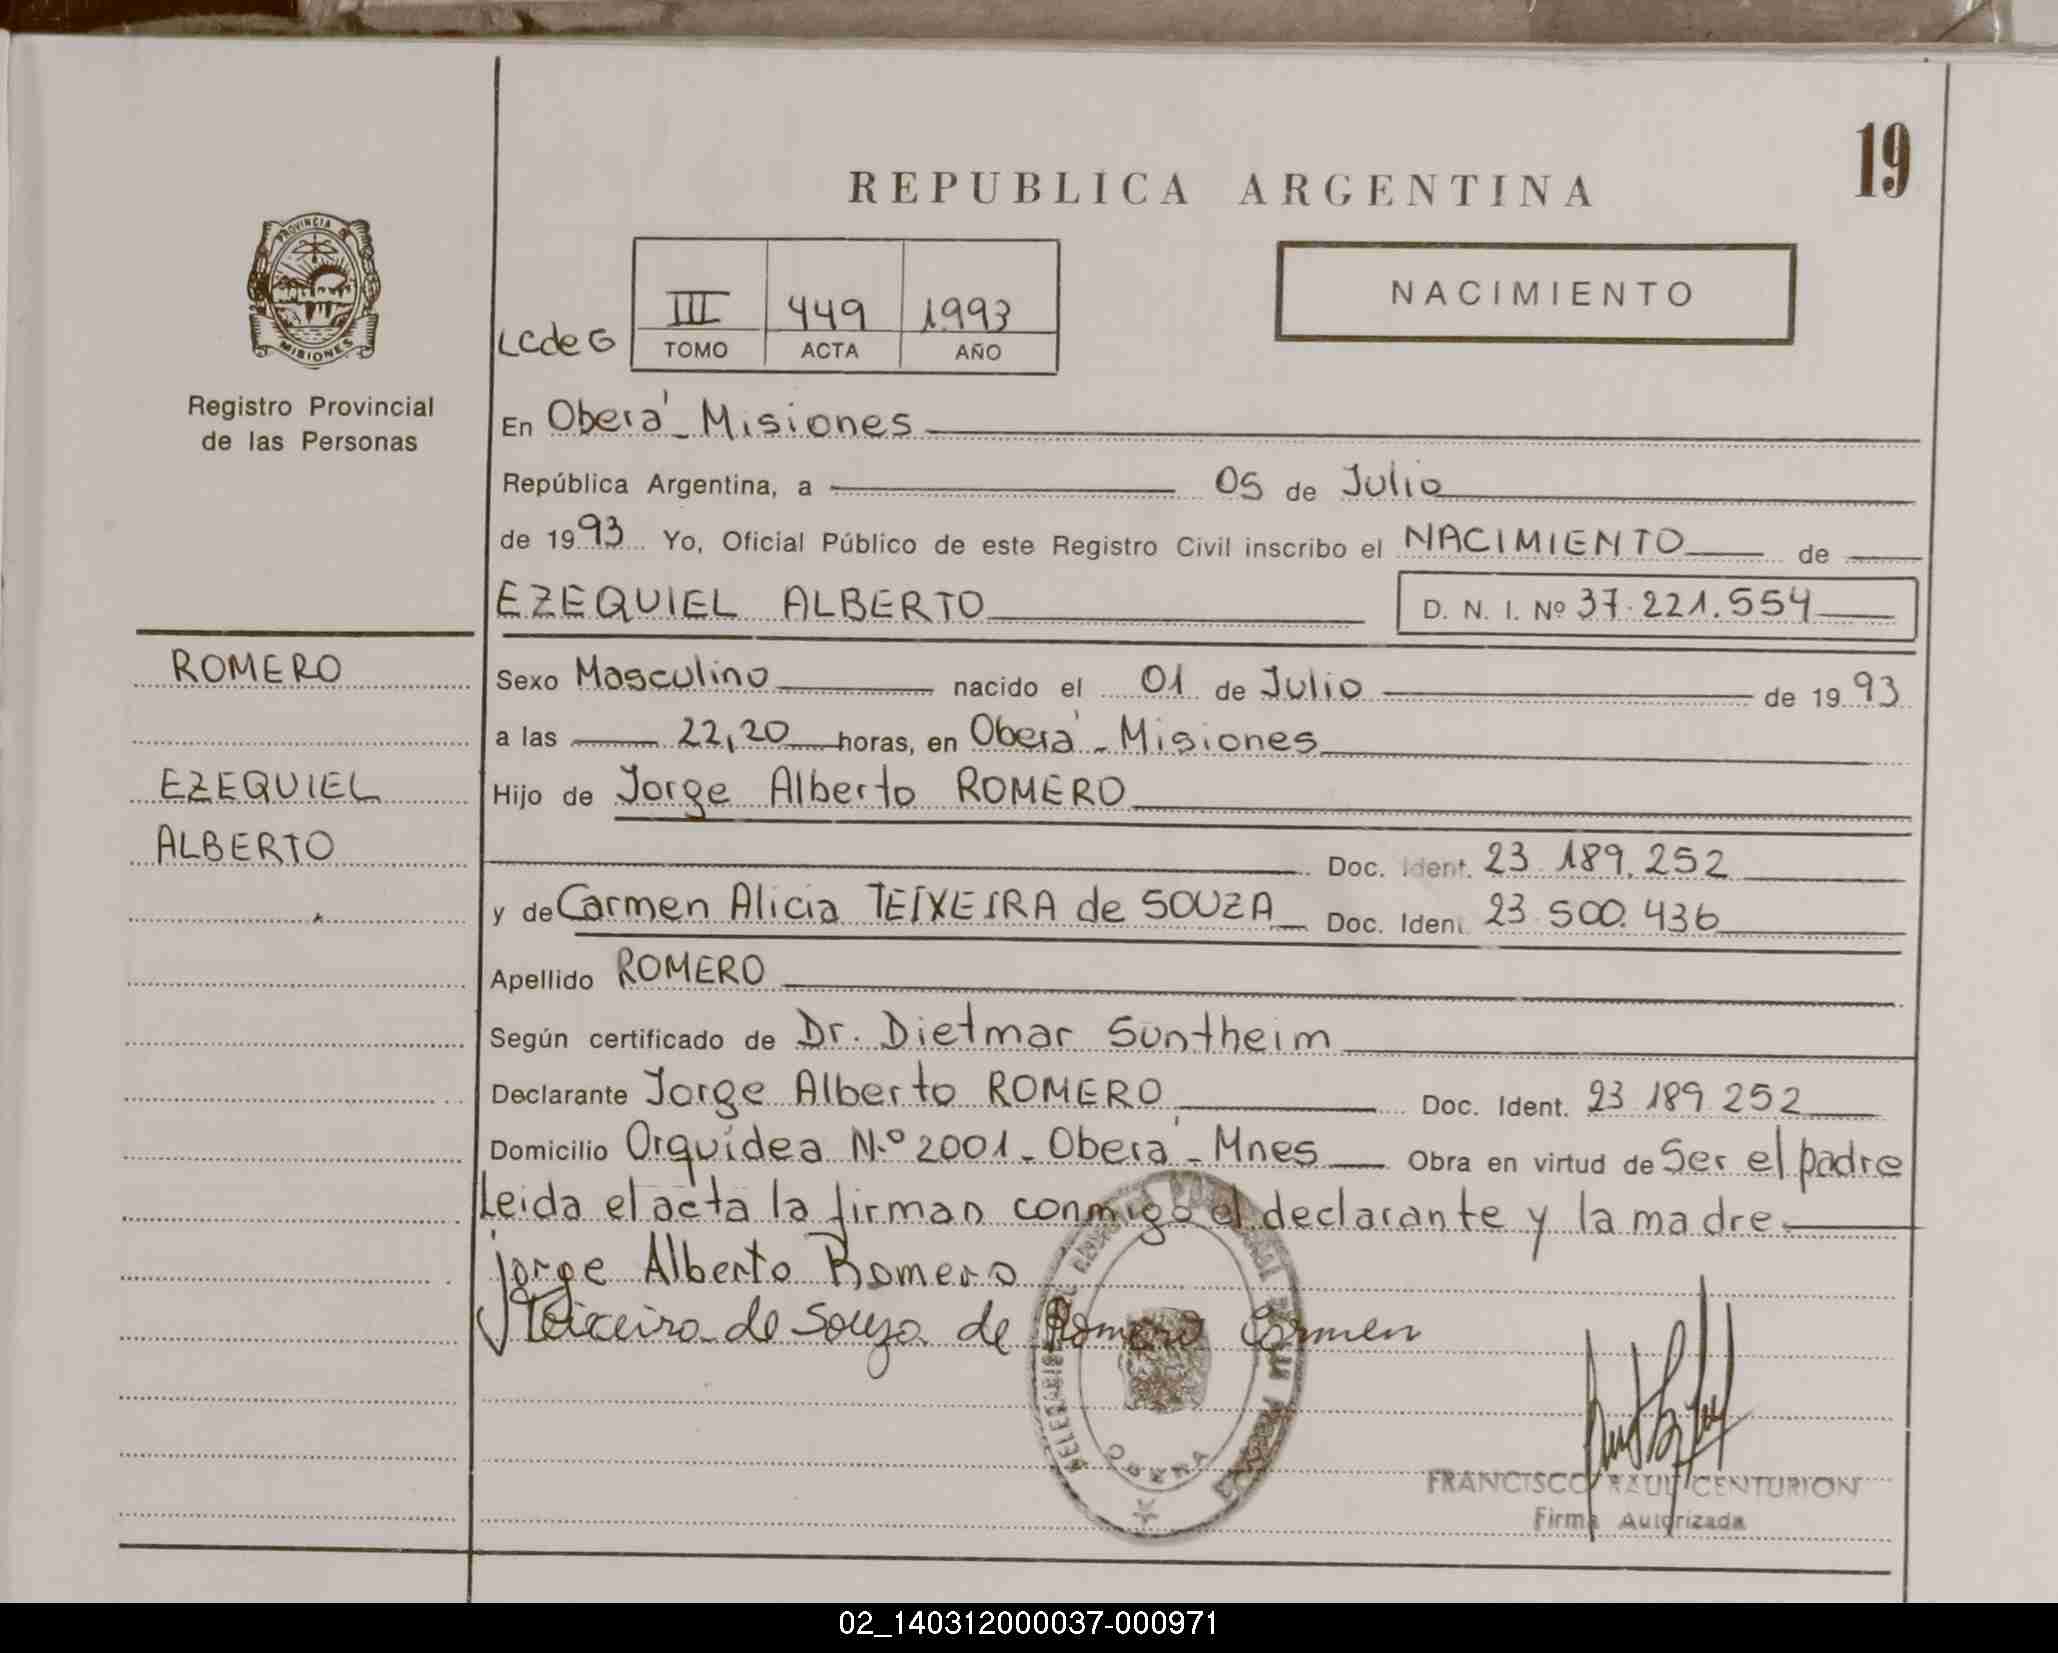 19
REPUBLICA ARGENTINA
PROVINCIA DE
MISIONES
Registro Provincial
de las Personas
LCdeG
III 449 1993
TOMO ACTA AÑO
NACIMIENTO
En Oberá - Misiones
República Argentina, a 05 de Julio
de 1993 Yo, Oficial Público de este Registro Civil inscribo el NACIMIENTO de
EZEQUIEL ALBERTO D. N. I. Nº 37.221.554
ROMERO
EZEQUIEL
ALBERTO
Sexo Masculino nacido el 01 de Julio de 1993
a las 22,20 horas, en Oberá - Misiones
Hijo de Jorge Alberto ROMERO
Doc. Ident. 23.189.252
y de Carmen Alicia TEIXEIRA de SOUZA Doc. Ident. 23.500.436
Apellido ROMERO
Según certificado de Dr. Dietmar Suntheim
Declarante Jorge Alberto ROMERO Doc. Ident. 23.189.252
Domicilio Orquídea N.º 2001 - Oberá - Mnes Obra en virtud de Ser el padre
Leida el acta la firman conmigo el declarante y la madre
Jorge Alberto Romero
Teixeira de Souza de Romero Carmen
OBERA
FRANCISCO RAUL CENTURION
Firma Autorizada
02_140312000037-000971